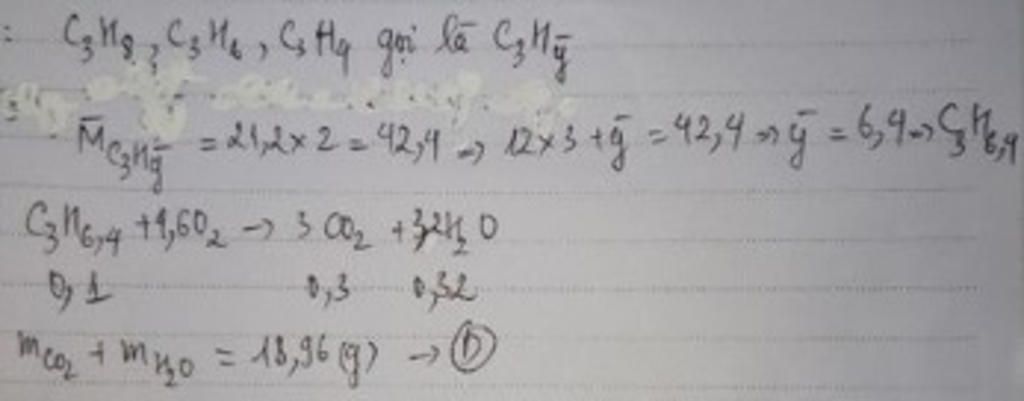 : C₃H₈, C₃H₆, C₃H₄ gọi là C₃Hȳ
M̄C₃Hȳ = 21,2 x 2 = 42,4 => 12 x 3 + ȳ = 42,4 => ȳ = 6,4 => C₃H₆,₄
C₃H₆,₄ + 4,6O₂ -> 3 CO₂ + 3,2H₂O
0,1 0,3 0,32
mCO₂ + mH₂O = 18,96 (g) -> Ⓓ